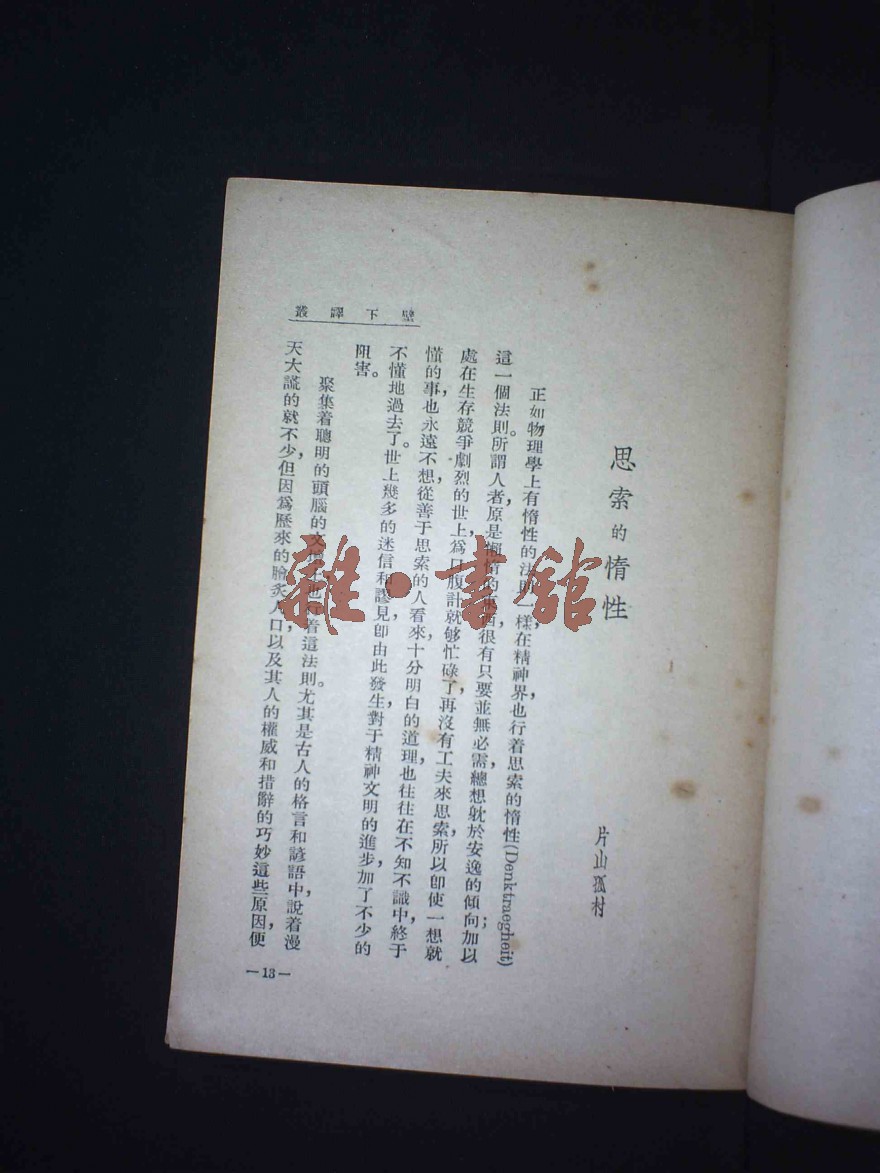 思索的惰性
片山孤村
正如物理學上有惰性的法則一樣，在精神界也行着思索的惰性(Denktraegheit)
這一個法則。所謂人者，原是懶惰的東西，很有只要並無必需，總想躭於安逸的傾向；加以
處在生存競爭劇烈的世上，爲口腹計就够忙碌了，再沒有工夫來思索，所以即使一想就
懂的事，也永遠不想，從善于思索的人看來，十分明白的道理，也往往在不知不識中，終于
不懂地過去了。世上幾多的迷信和謬見，即由此發生，對于精神文明的進步，加了不少的
阻害。
聚集着聰明的頭腦的文壇上也行着這法則。尤其是古人的格言和諺語中，說着漫
天大謊的就不少，但因爲歷來的膾炙人口，以及其人的權威和措辭的巧妙這些原因，便
壁下譯叢
—13—
雜·書館